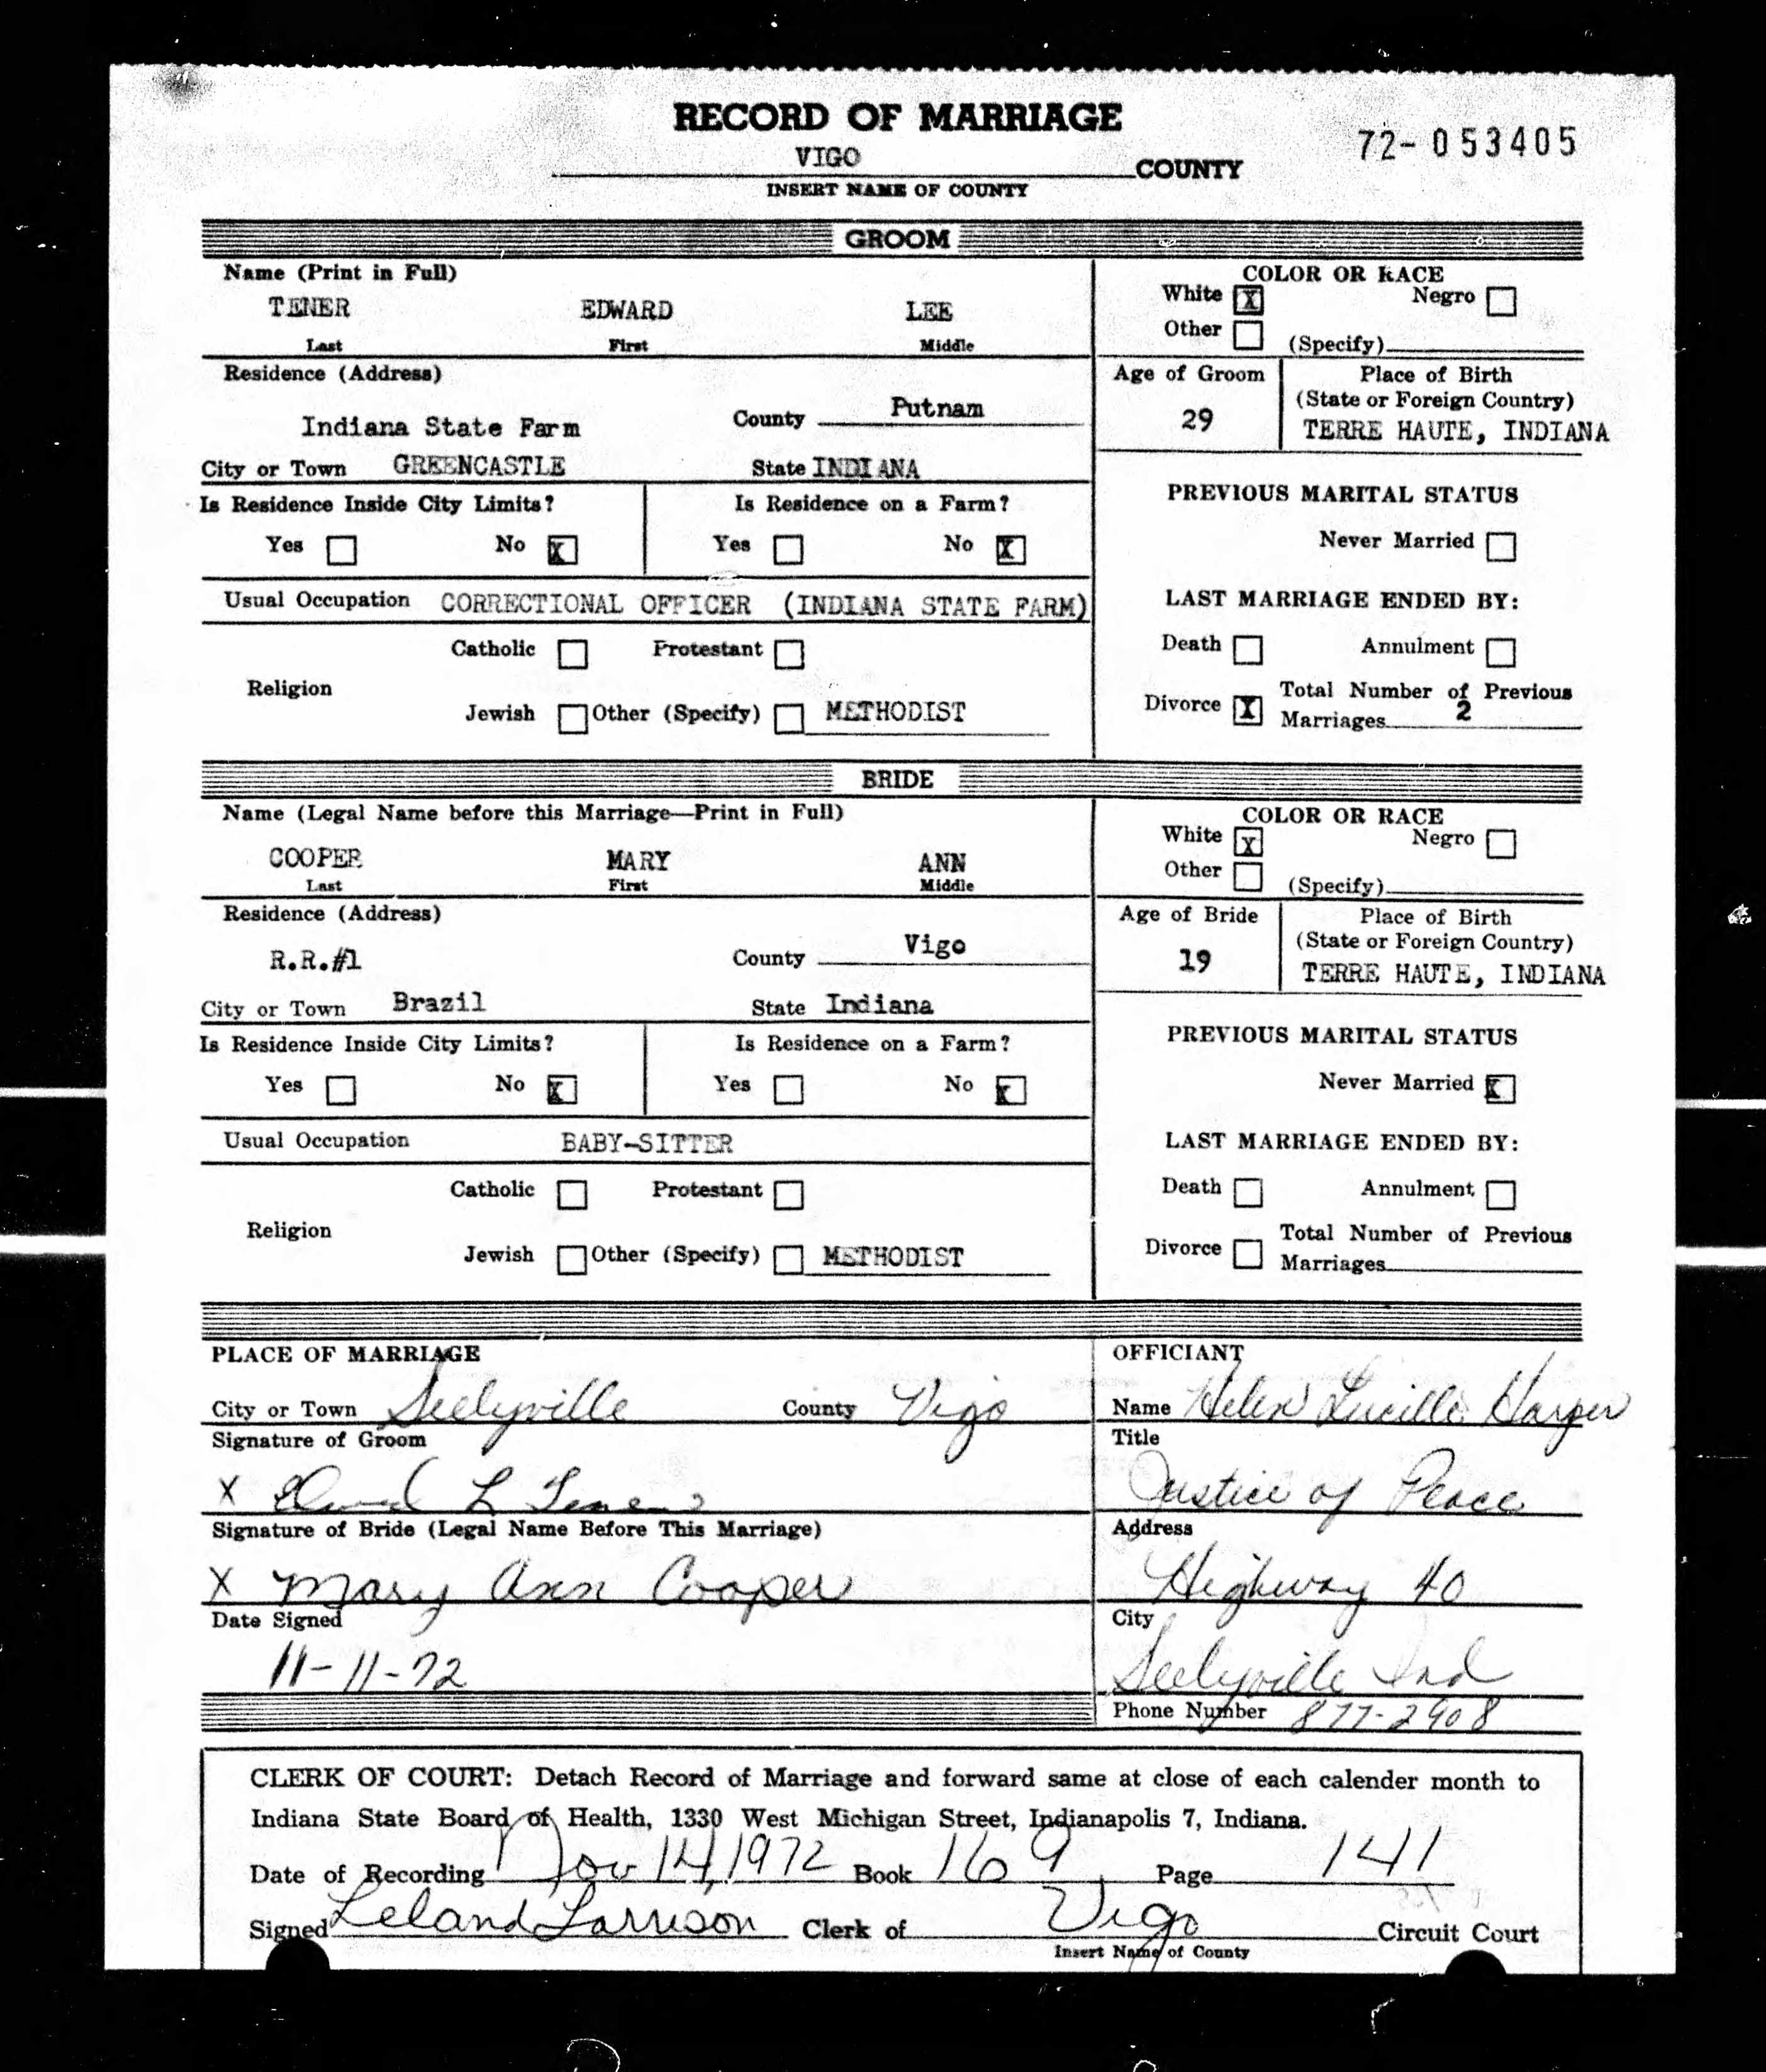 RECORD OF MARRIAGE
72-053405
VIGO COUNTY
INSERT NAME OF COUNTY
GROOM
Name (Print in Full)
TENER EDWARD LEE
Last First Middle
COLOR OR RACE
White X Negro
Other (Specify)
Residence (Address)
Indiana State Farm County Putnam
City or Town GREENCASTLE State INDIANA
Age of Groom
29
Place of Birth
(State or Foreign Country)
TERRE HAUTE, INDIANA
Is Residence Inside City Limits?
Yes No X
Is Residence on a Farm?
Yes No X
PREVIOUS MARITAL STATUS
Never Married
Usual Occupation CORRECTIONAL OFFICER (INDIANA STATE FARM)
LAST MARRIAGE ENDED BY:
Death Annulment
Divorce X Total Number of Previous
Marriages 2
Catholic Protestant
Religion
Jewish Other (Specify) METHODIST
BRIDE
Name (Legal Name before this Marriage—Print in Full)
COOPER MARY ANN
Last First Middle
COLOR OR RACE
White X Negro
Other (Specify)
Residence (Address)
R.R.#1 County Vigo
City or Town Brazil State Indiana
Age of Bride
19
Place of Birth
(State or Foreign Country)
TERRE HAUTE, INDIANA
Is Residence Inside City Limits?
Yes No X
Is Residence on a Farm?
Yes No X
PREVIOUS MARITAL STATUS
Never Married X
Usual Occupation BABY-SITTER
LAST MARRIAGE ENDED BY:
Death Annulment
Divorce Total Number of Previous
Marriages
Catholic Protestant
Religion
Jewish Other (Specify) METHODIST
PLACE OF MARRIAGE
City or Town Seelyville County Vigo
Signature of Groom
X Edward L Tener
Signature of Bride (Legal Name Before This Marriage)
X Mary Ann Cooper
Date Signed
11-11-72
OFFICIANT
Name Helen Lucille Harper
Title
Justice of Peace
Address
Highway 40
City
Seelyville Ind
Phone Number 877-2908
CLERK OF COURT: Detach Record of Marriage and forward same at close of each calender month to
Indiana State Board of Health, 1330 West Michigan Street, Indianapolis 7, Indiana.
Date of Recording Nov 14, 1972 Book 169 Page 141
Signed Leland Larrison Clerk of Vigo Circuit Court
Insert Name of County